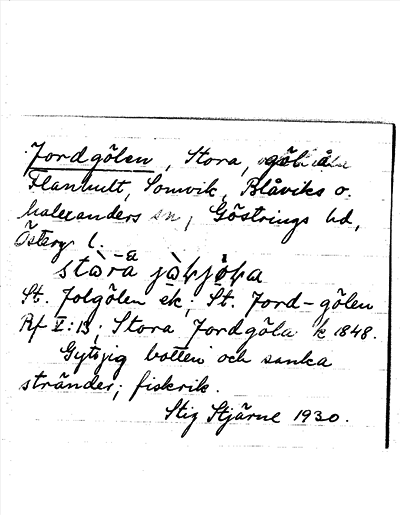 Jordgölen, Stora, göl å
Flanhult, Somvik, Blåviks o.
Malexanders sn, Göstrings hd,
Österg. l.
St. Jolgölen ek; St. Jord-gölen
Rf V:13; Stora Jordgöla k 1848.
Gyttjig botten och sanka
stränder; fiskrik.
Stig Stjärne 1930.